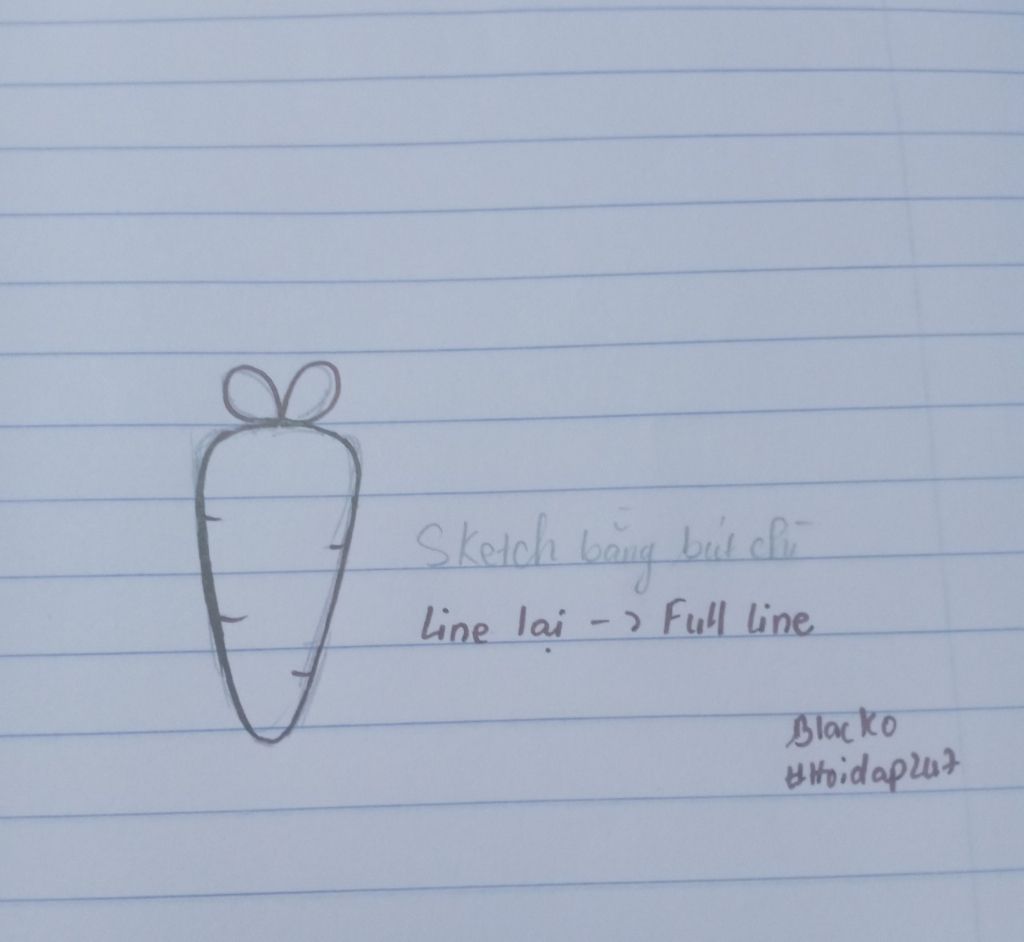 Sketch bằng bút chì
Line lại -> Full line
Blacko
#Hoidap247